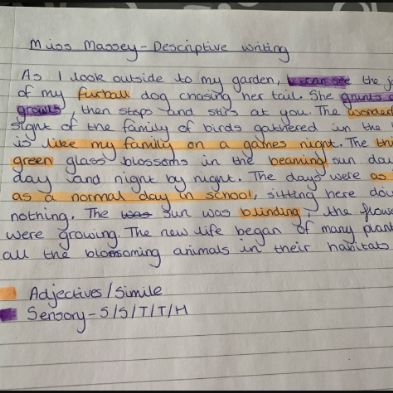 Miss Massey - Descriptive writing
As I look outside to my garden, I can see the
of my furball dog chasing her tail. She grunts
growls, then stops and stirs at you. The
sight of the family of birds gathered in the
is like my family on games night. The
green glass blossoms in the beaming sun
day and night by night. The days were as
as a normal day in school, sitting here
nothing. The was sun was blinding, the
were growing. The new life began of many
all the blossoming animals in their habitats
Adjectives/Simile
Sensory - S/S/T/T/H